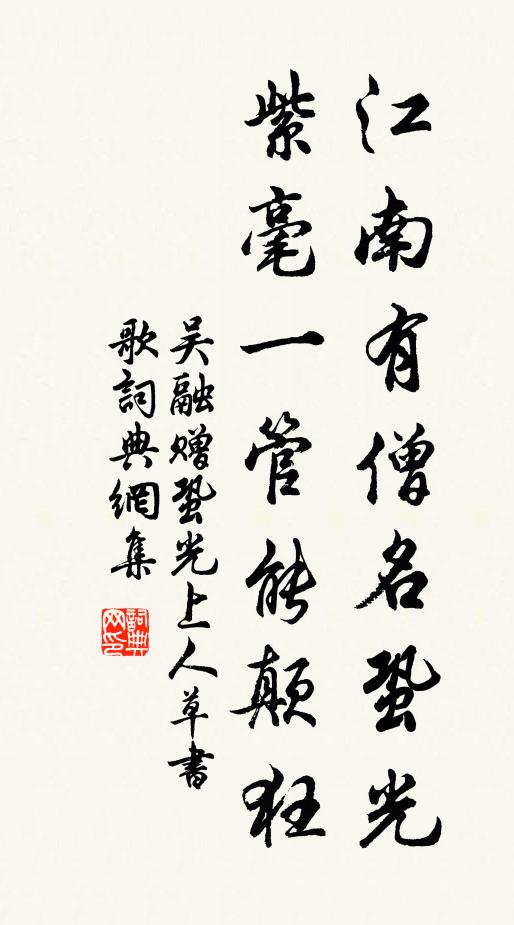 江南有僧名蛩光
紫毫一管能颠狂
吴融赠蛩光上人草書
歌詞典網集
詞典
网印